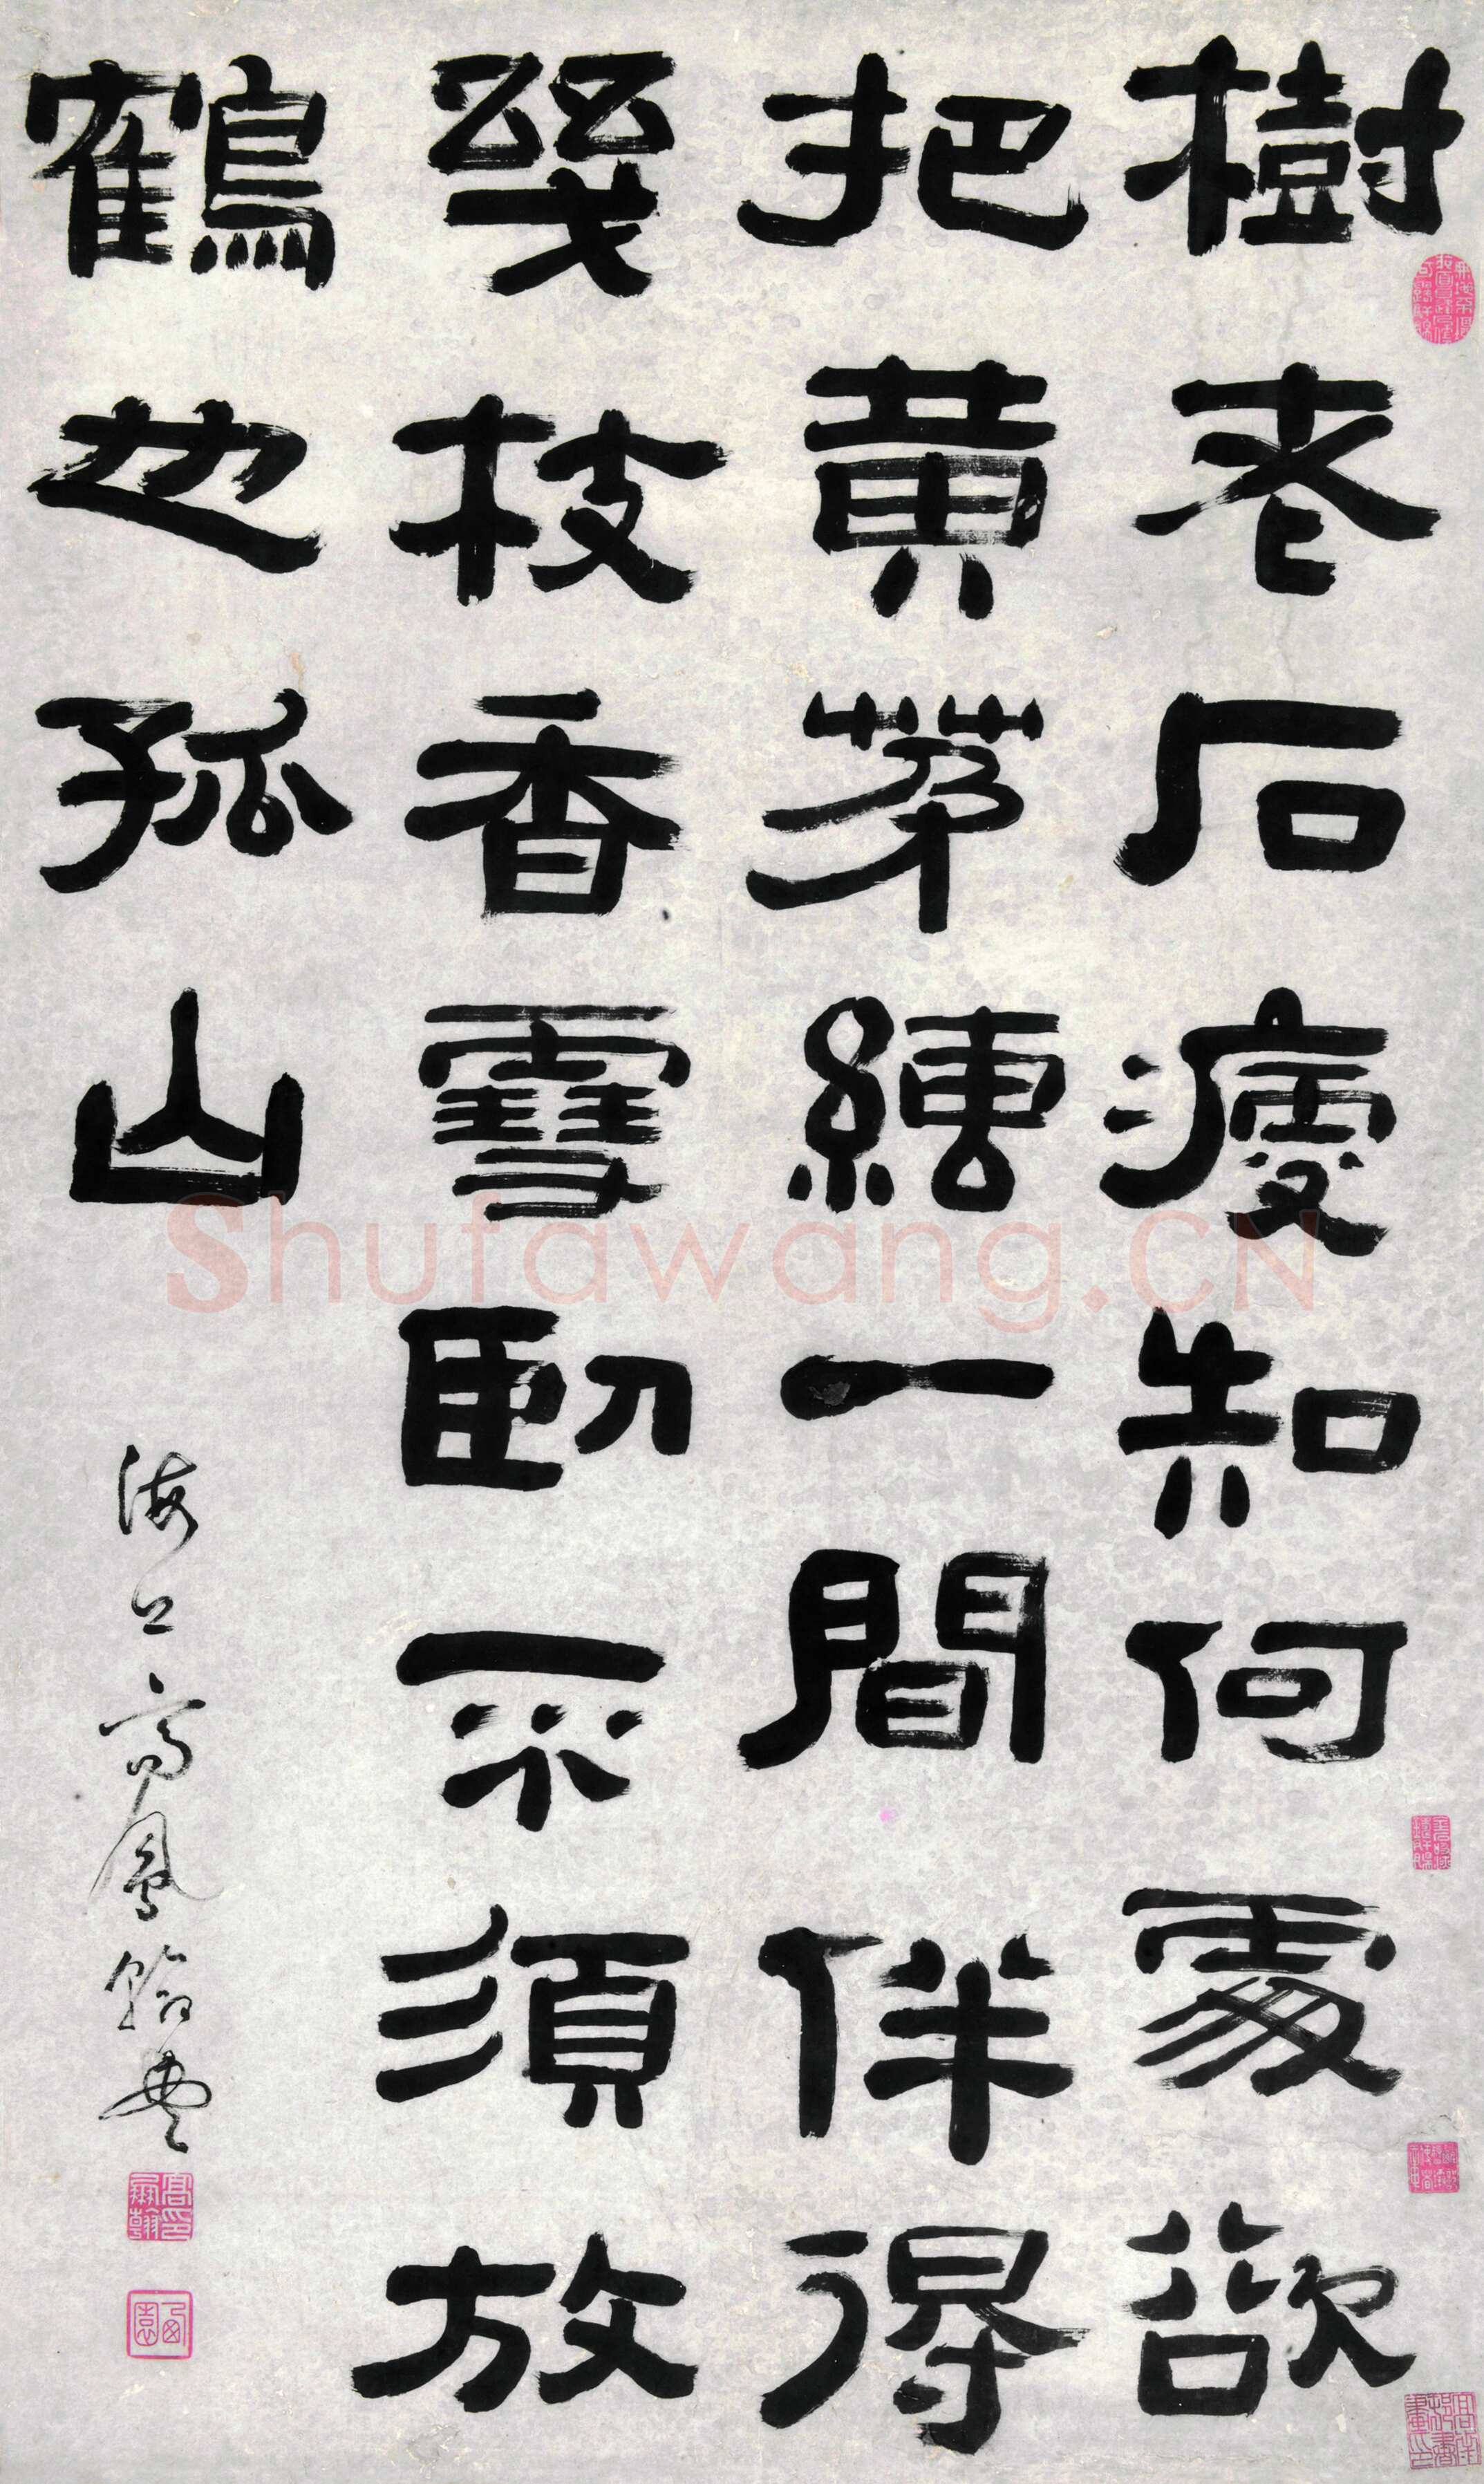 樹老石瘦知何處欲
把黃茅縛一間伴得
幾枝香雪臥不須放
鶴也孤山
海上高鳳翰
高印鳳翰
西園
Shufawang.CN